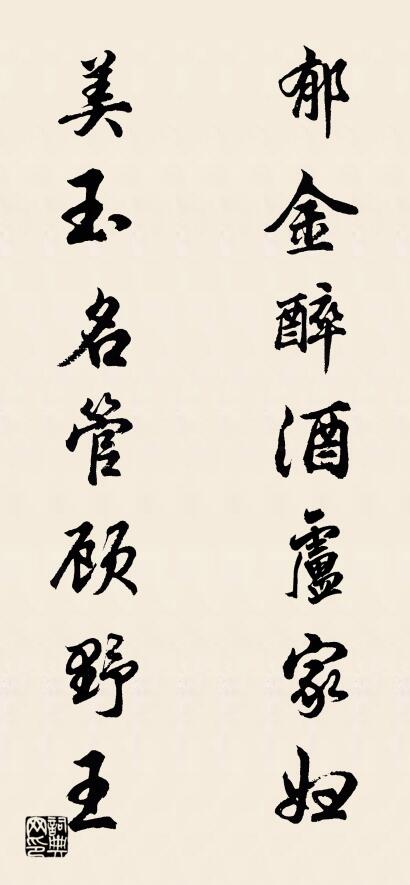 郁金醉酒盧家妇
美玉名管顾野王
詞典网印